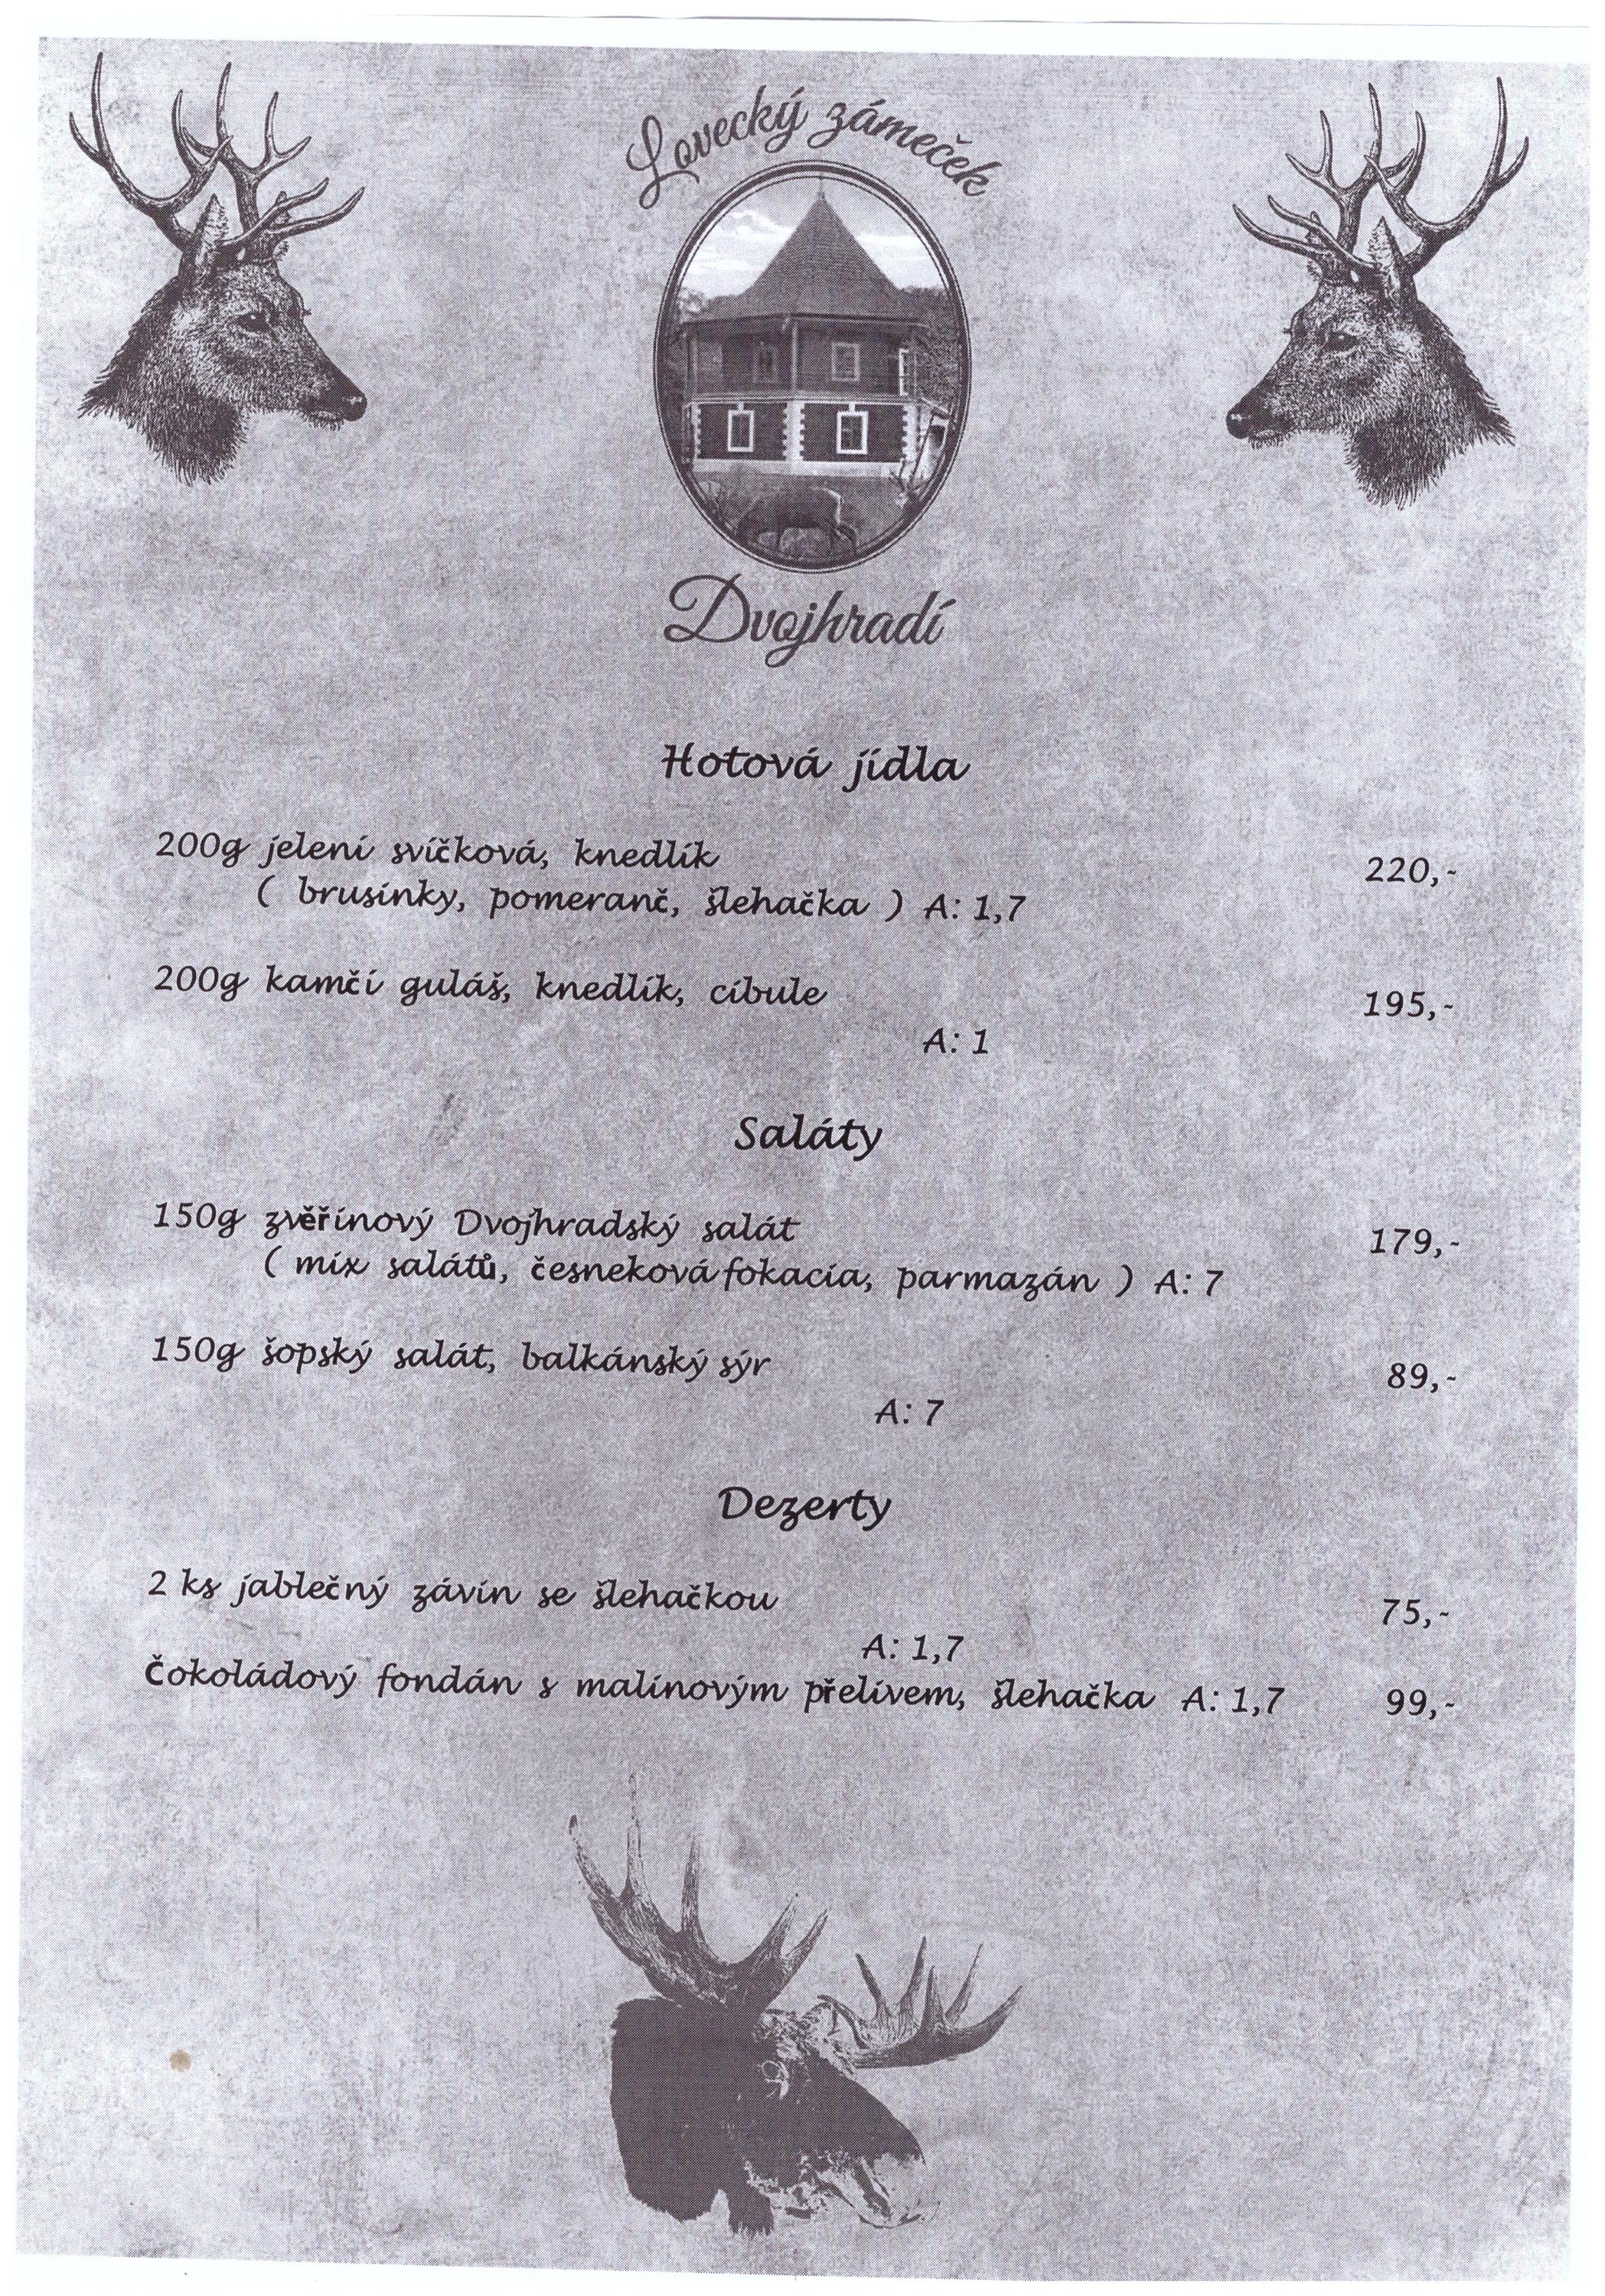 Lovecký zámeček
Dvojhradí
Hotová jídla
200g jelení svíčková, knedlík 220,-
( brusinky, pomeranč, šlehačka ) A: 1,7
200g kamčí guláš, knedlík, cibule 195,-
A: 1
Saláty
150g zvěřinový Dvojhradský salát 179,-
( mix salátů, česneková fokacia, parmazán ) A: 7
150g šopský salát, balkánský sýr 89,-
A: 7
Dezerty
2 ks jablečný závin se šlehačkou 75,-
A: 1,7
Čokoládový fondán s malinovým přelivem, šlehačka A: 1,7 99,-